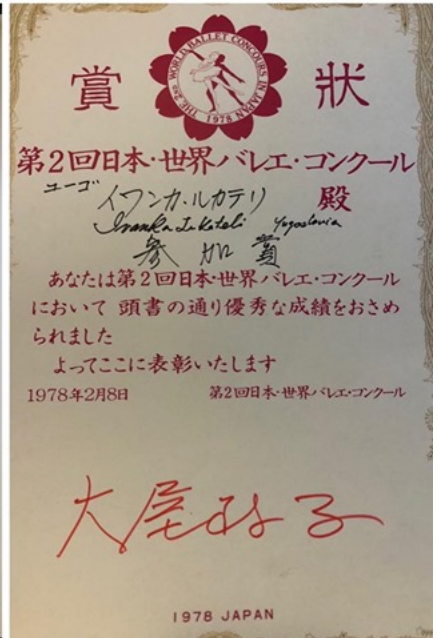 賞 状
THE 2ND WORLD BALLET CONCOURS IN JAPAN
1978
第2回日本・世界バレエ・コンクール
ユーゴ イワンカ・ルカテリ 殿
Ivanka Lukateli Yugoslavia
参加賞
あなたは第2回日本・世界バレエ・コンクール
において 頭書の通り優秀な成績をおさめ
られました
よってここに表彰いたします
1978年2月8日 第2回日本・世界バレエ・コンクール
大屋政子
1978 JAPAN